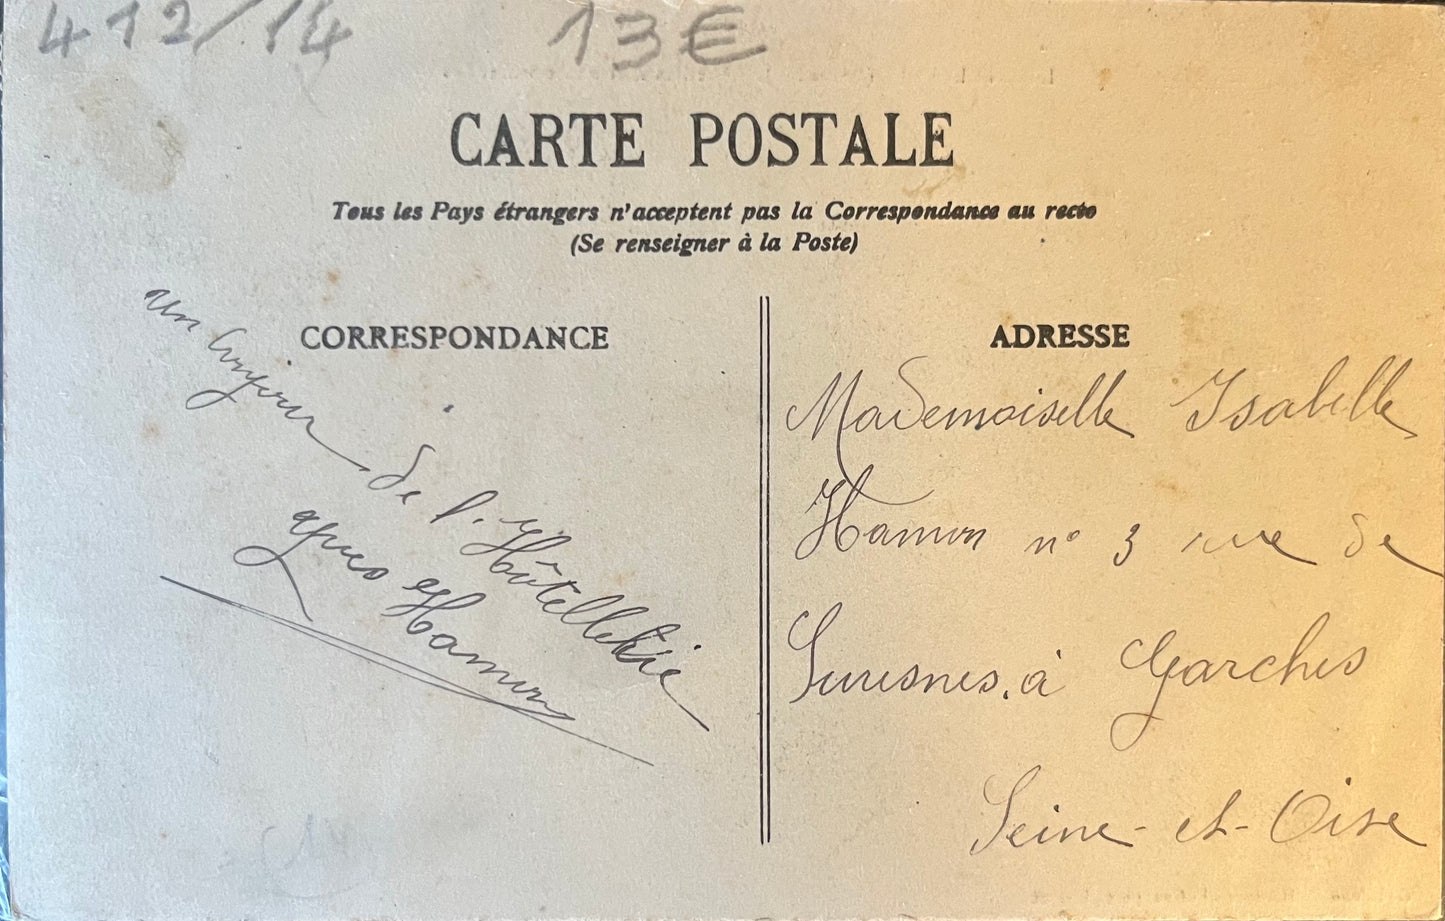 412/14
13€
CARTE POSTALE
Tous les Pays étrangers n'acceptent pas la Correspondance au recto
(Se renseigner à la Poste)
CORRESPONDANCE
un bonjour de l'Hôtellerie
Hamon
ADRESSE
Mademoiselle Isabelle
Hamon n° 3 rue de
Suresnes. à Garches
Seine-et-Oise